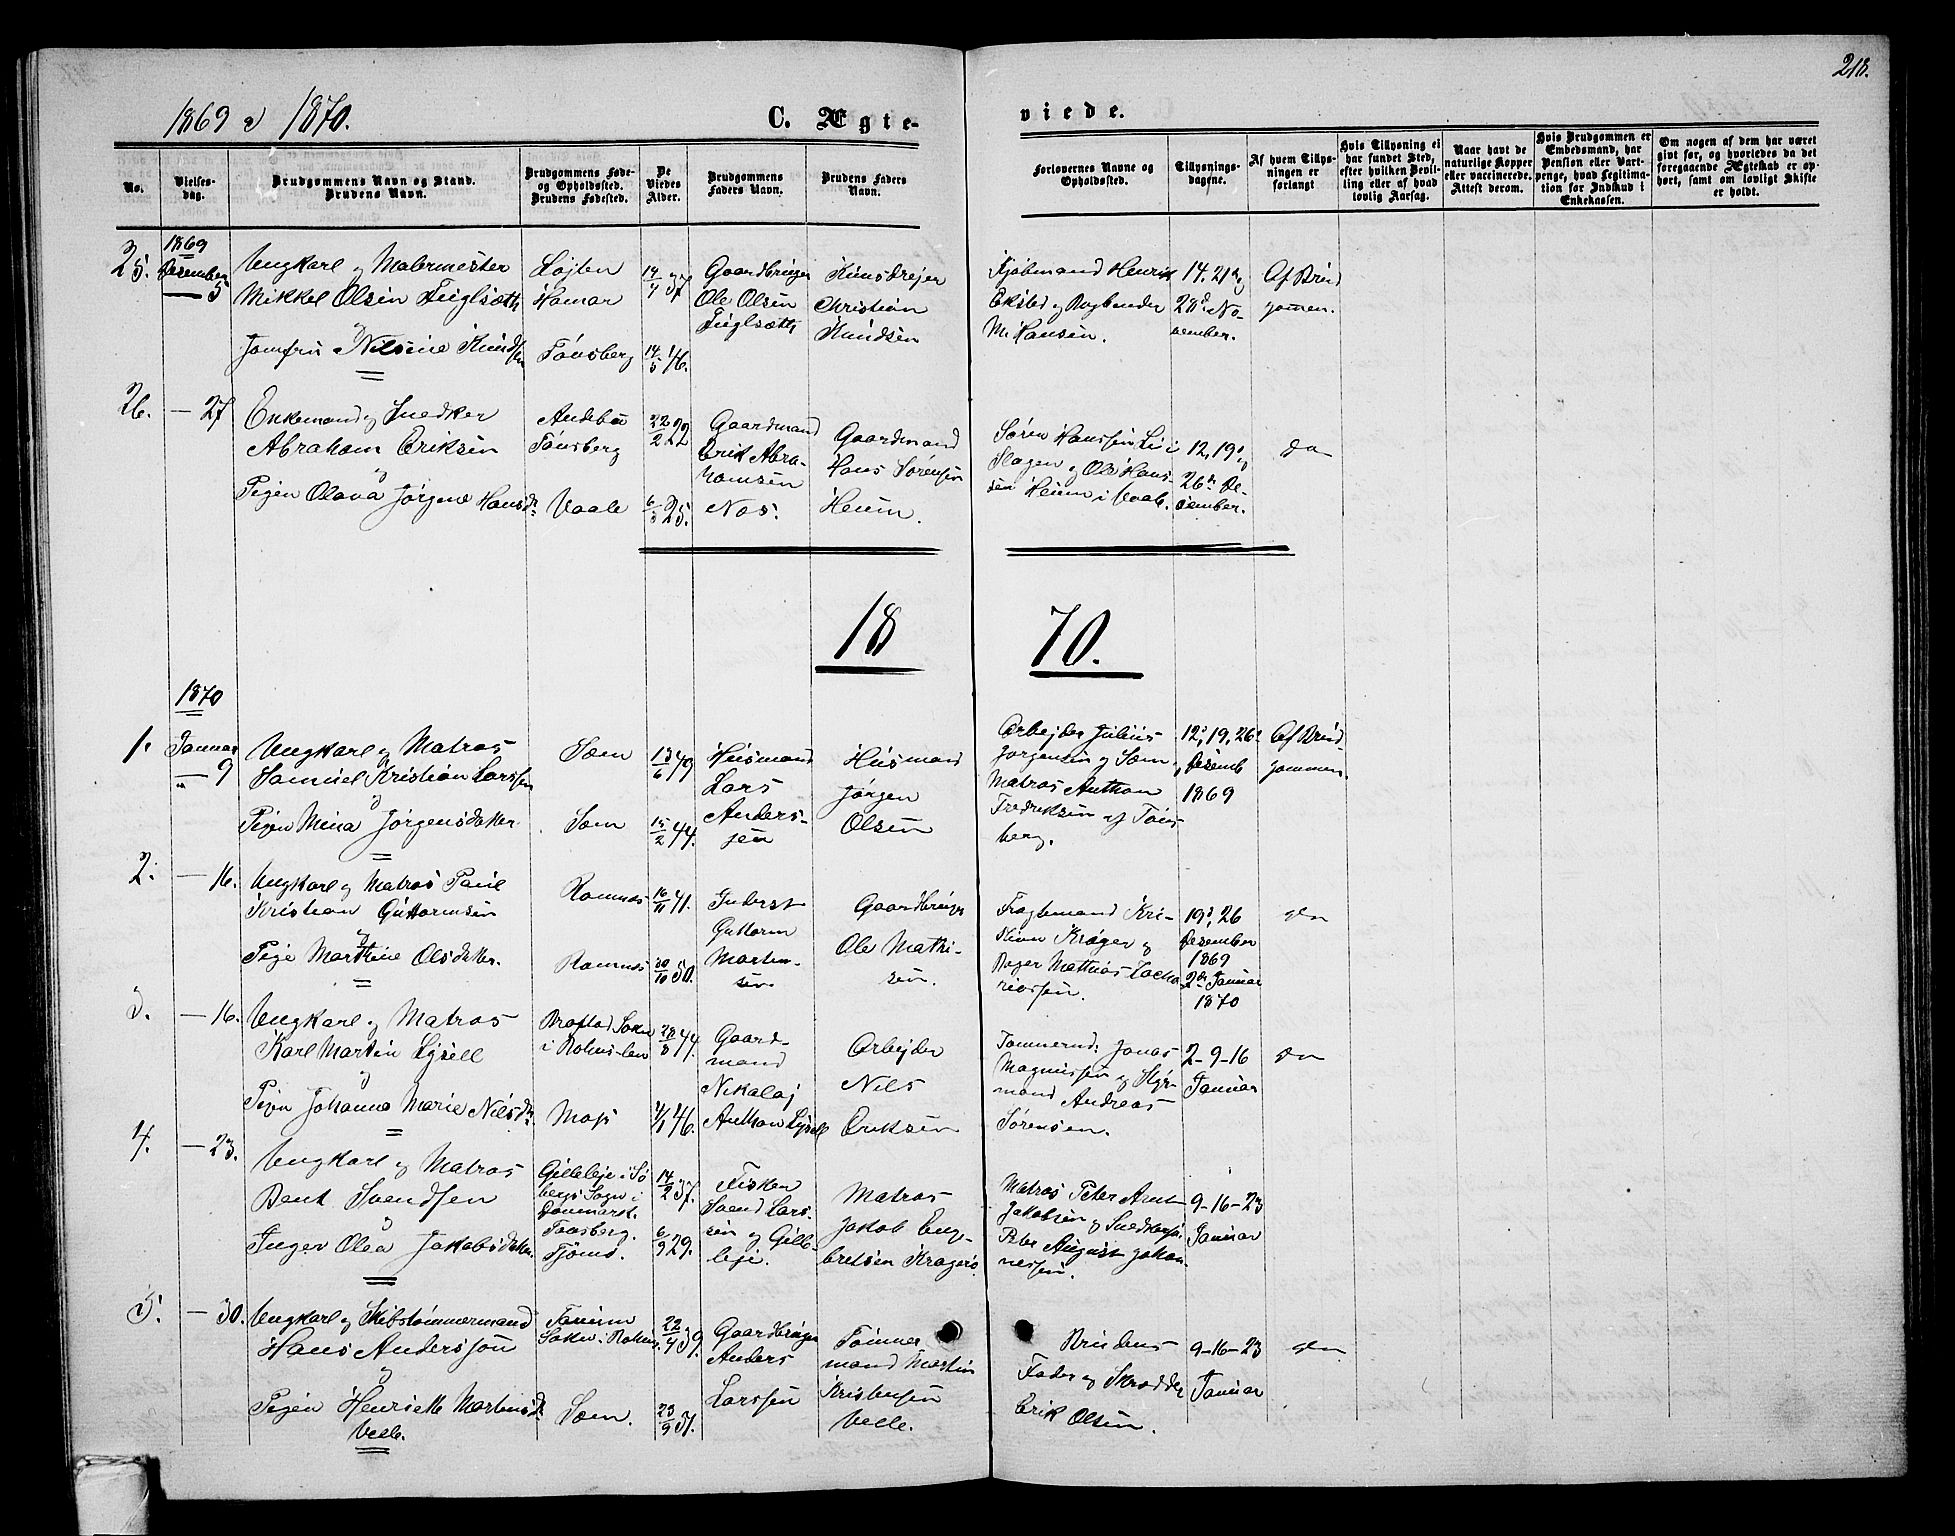 218.
1869 & 1870.
C. Ægte-
viede.
No.
Vielses-
dag.
Brudgommens Navn og Stand.
Brudens Navn.
Brudgommens Føde-
og Opholdssted.
Brudens Fødested.
De
Viedes
Alder.
Brudgommens
Faders Navn.
Brudens Faders
Navn.
Forlovernes Navne og
Opholdssted.
Tillysnings-
dagene.
Af hvem Tillys-
ningen er
forlangt
Hvis Tillysning ei
har fundet Sted,
efter hvilken Bevil-
ling eller af hvad
lovlig Aarsag.
Naar havt de
naturlige Kopper
eller vaccinerede.
Attest derom.
Hvis Brudgommen er
Embedsmand, har
Pension eller Vart-
penge, hvad Legitima-
tion for Indskud i
Enkekassen.
Om nogen af dem har været
gift før, og hvorledes da det
foregaaende Ægteskab er op-
hørt, samt om lovligt Skifte
er holdt.
25.
1869
Desember
— 5
Ungkarl og Malermester
Mikkel Olsen Fuglsæth
og
Jomfru Nilsine Knudsen
Løjten
Hamar
Tønsberg
14/4 37
14/5 46.
Gaardbruger
Ole Olsen
Fuglsæth
Kunsdrejer
Christian
Knudsen
Kjøbmand Henrik
Eksted og Bogbinder
M. Hansen.
14. 21de og
28de No-
vember.
Af Brud
gomen.
26.
— 27
Enkemand og Snedker
Abraham Eriksen
og
Pigen Olava Jørgine Hansdr.
Andebu
Tønsberg
Vaale
22/2 22
6/3 25.
Gaardmand
Erik Abra-
hamsen
Nos.
Gaardmand
Hans Sørensen
Heum.
Søren Hanssen Li i
Slagen og Ole Hans-
sen Heum i Vaale.
12, 19de og
26de De-
sember.
do
18
70.
1870
1.
Januar
— 9
Ungkarl og Matros
Samuel Kristian Larssen
og
Pigen Mina Jørgensdatter
Sæm
Sæm
13/6 49
15/2 44.
Husmand
Lars
Anders-
sen
Husmand
Jørgen
Olsen
Arbejder Julius
Jørgensen og Sæm
Matros Anthon
Fredriksen af Tøns
berg.
12, 19, 26de
Desemb
1869
Af Brud
gommen.
2.
— 16.
Ungkarl og Matros Paul
Kristian Guttormsen
og
Pige Marthine Olsdatter.
Ramnæs
Ramnæs
16/11 41.
30/10 50.
Inderst
Guttorm
Martin-
sen
Gaardbruger
Ole Mathi-
sen.
Fragtemand Kri-
stian Krøger og
Bager Mathias Zacha
riassen.
19de, 26
Desember
1869
2den Januar
1870
do
3.
— 16.
Ungkarl og Matros
Karl Martin Lysell
og
Pigen Johanne Marie Nilsdr.
Brastad Sokn
i Bohus-len
Moss
28/8 44.
4/1 46.
Gaard-
mand
Nikolaj
Anthon Lysell
Arbejder
Nils
Eriksen
Tømmermd. Jonas
Magnussen og Styr-
mand Andreas
Sørensen.
2-9-16
Januar
do
4.
— 23.
Ungkarl og Matros
Bent Svendsen
og
Inger Olea Jakobsdatter.
Gilleleje i Sø
bergs Sogn i
Danmark
Tønsberg.
Tjømø.
14/2 37.
6/9 29.
Fisker
Svend Lars-
sen og Gille-
leje.
Matros
Jakob Eng-
bretsen Kragerø.
Matros Peter Arnt
Jakobsen og
Peter August Johan-
nessen.
9-16-23
Januar
5.
— 30.
Ungkarl og Skibstømmermand
Hans Anderssøn
og
Pigen Henriette Martinsdr.
Velle.
Tanum
Sokn i Bohus.
Sæm.
22/4 39.
23/9 51.
Gaardbruger
Anders
Larssen
Tømmer
mand Martin
Kristensen
Velle.
Brudens
Fader og Skrædder
Erik Olsen.
9-16-23
Januar
do